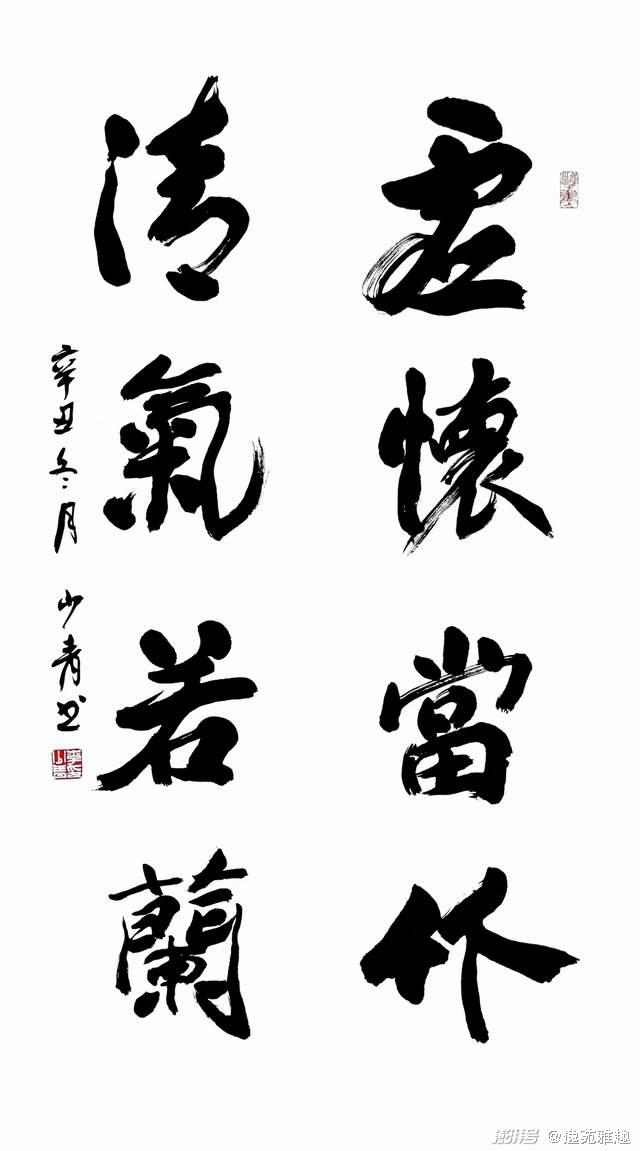 虚懷當竹
清氣若蘭
辛丑冬月 少青书
澎湃号 @逸苑雅趣